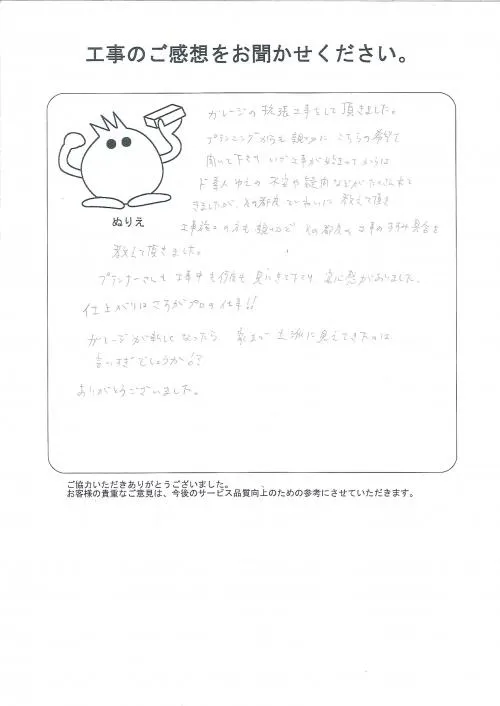 工事のご感想をお聞かせください。
ガレージの拡張工事をして頂きました。
プランニングからも親切に こちらの希望を
聞いて下さり いざ工事が始まってからは
ド素人ゆえの 不安や疑問などがたくさん出て
きましたが、その都度 ていねいに 教えて頂き
工事施工の方も 親切で その都度、工事のすすみ具合を
教えて頂きました。
プランナーさんも 工事中も何度も 見にきて下さり 安心感がありました。
仕上がりはさすがプロの仕事!!
ガレージが新しくなったら 家まで 立派に見えてきたのは
言いすぎでしょうか!?
ありがとうございました。
ぬりえ
ご協力いただきありがとうございました。
お客様の貴重なご意見は、今後のサービス品質向上のための参考にさせていただきます。